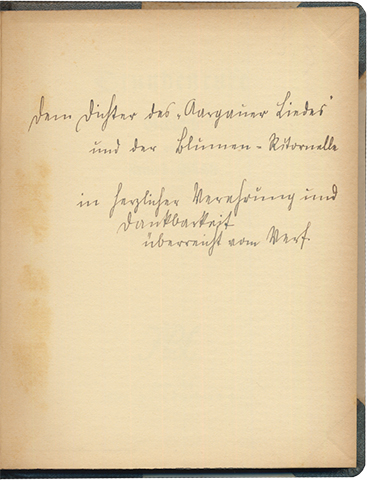 Dem Dichter des „Aargauer Liedes"
und der Blumen-Ritornelle
in herzlicher Verehrung und
Dankbarkeit
überreicht vom Verf.